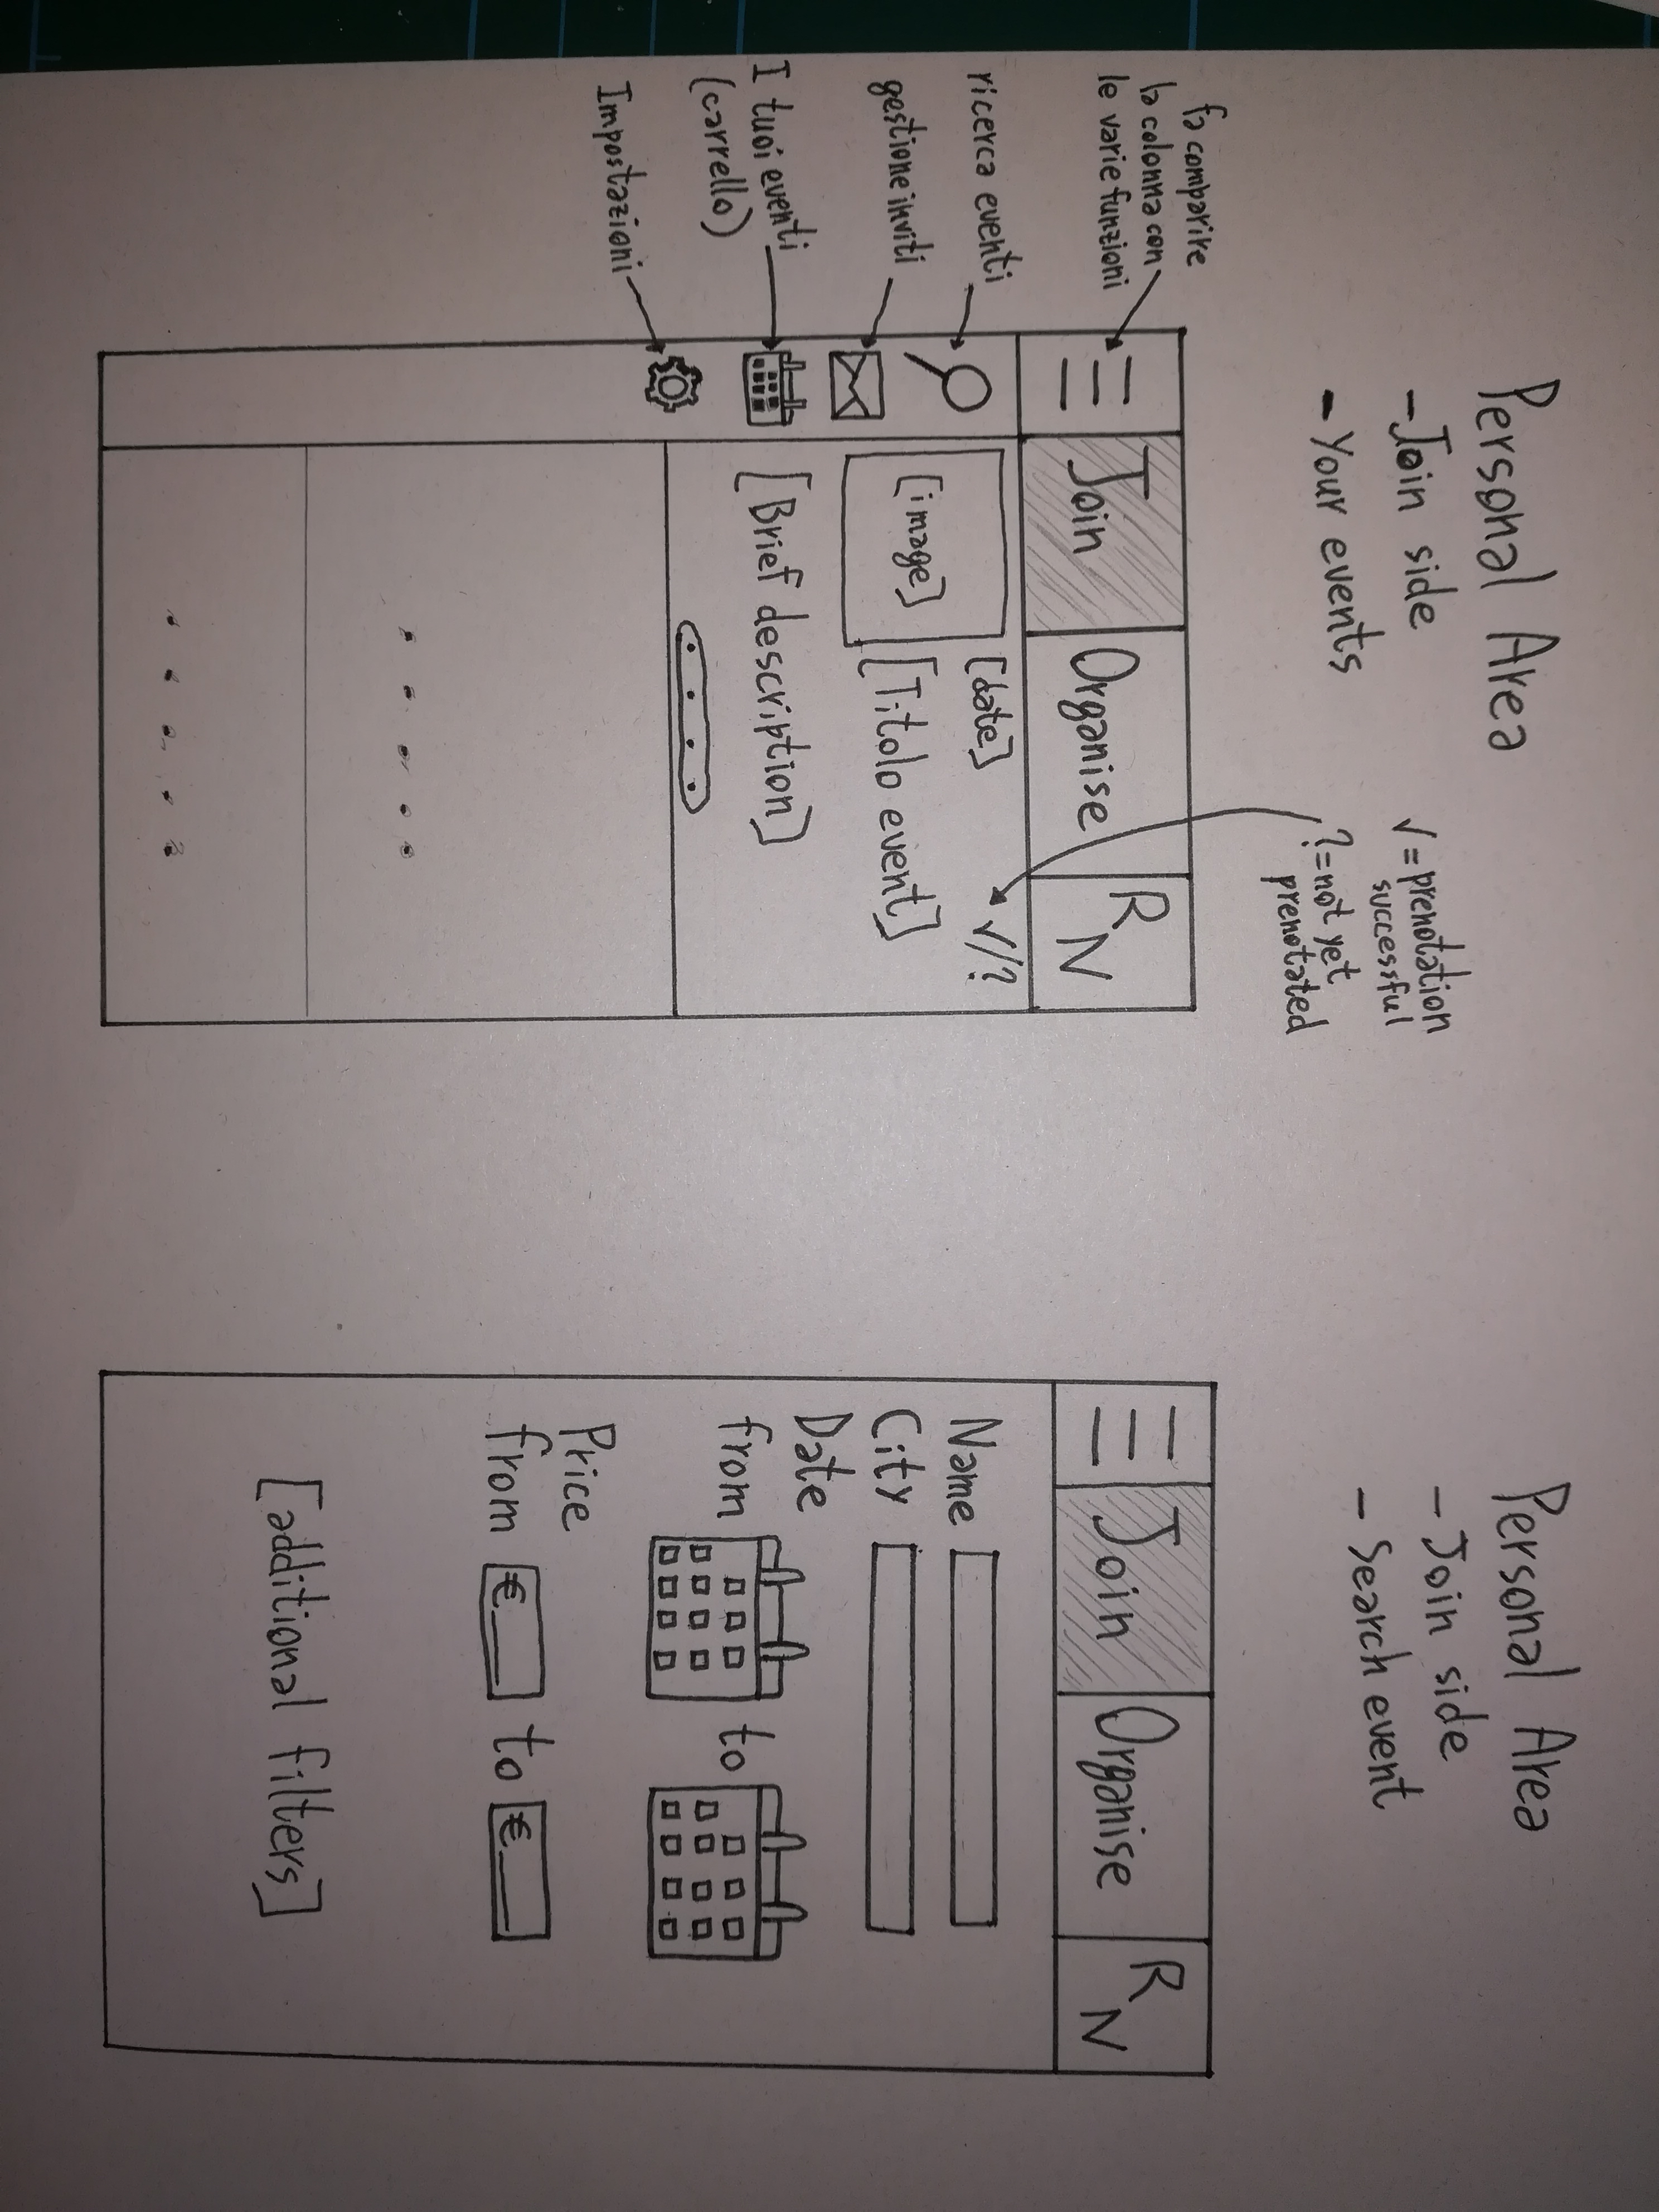 Personal Area
- Join side
- Your events
√ = prenotation
successful
? = not yet
prenotated
fa comparire
la colonna con
le varie funzioni
ricerca eventi
gestione inviti
I tuoi eventi
(carrello)
Impostazioni
Join
Organise
R
N
[image]
[date]
√/?
[Titolo event]
[Brief description]
Personal Area
- Join side
- Search event
Join
Organise
R
N
Name
City
Date
from
to
Price
from € to €
[additional filters]